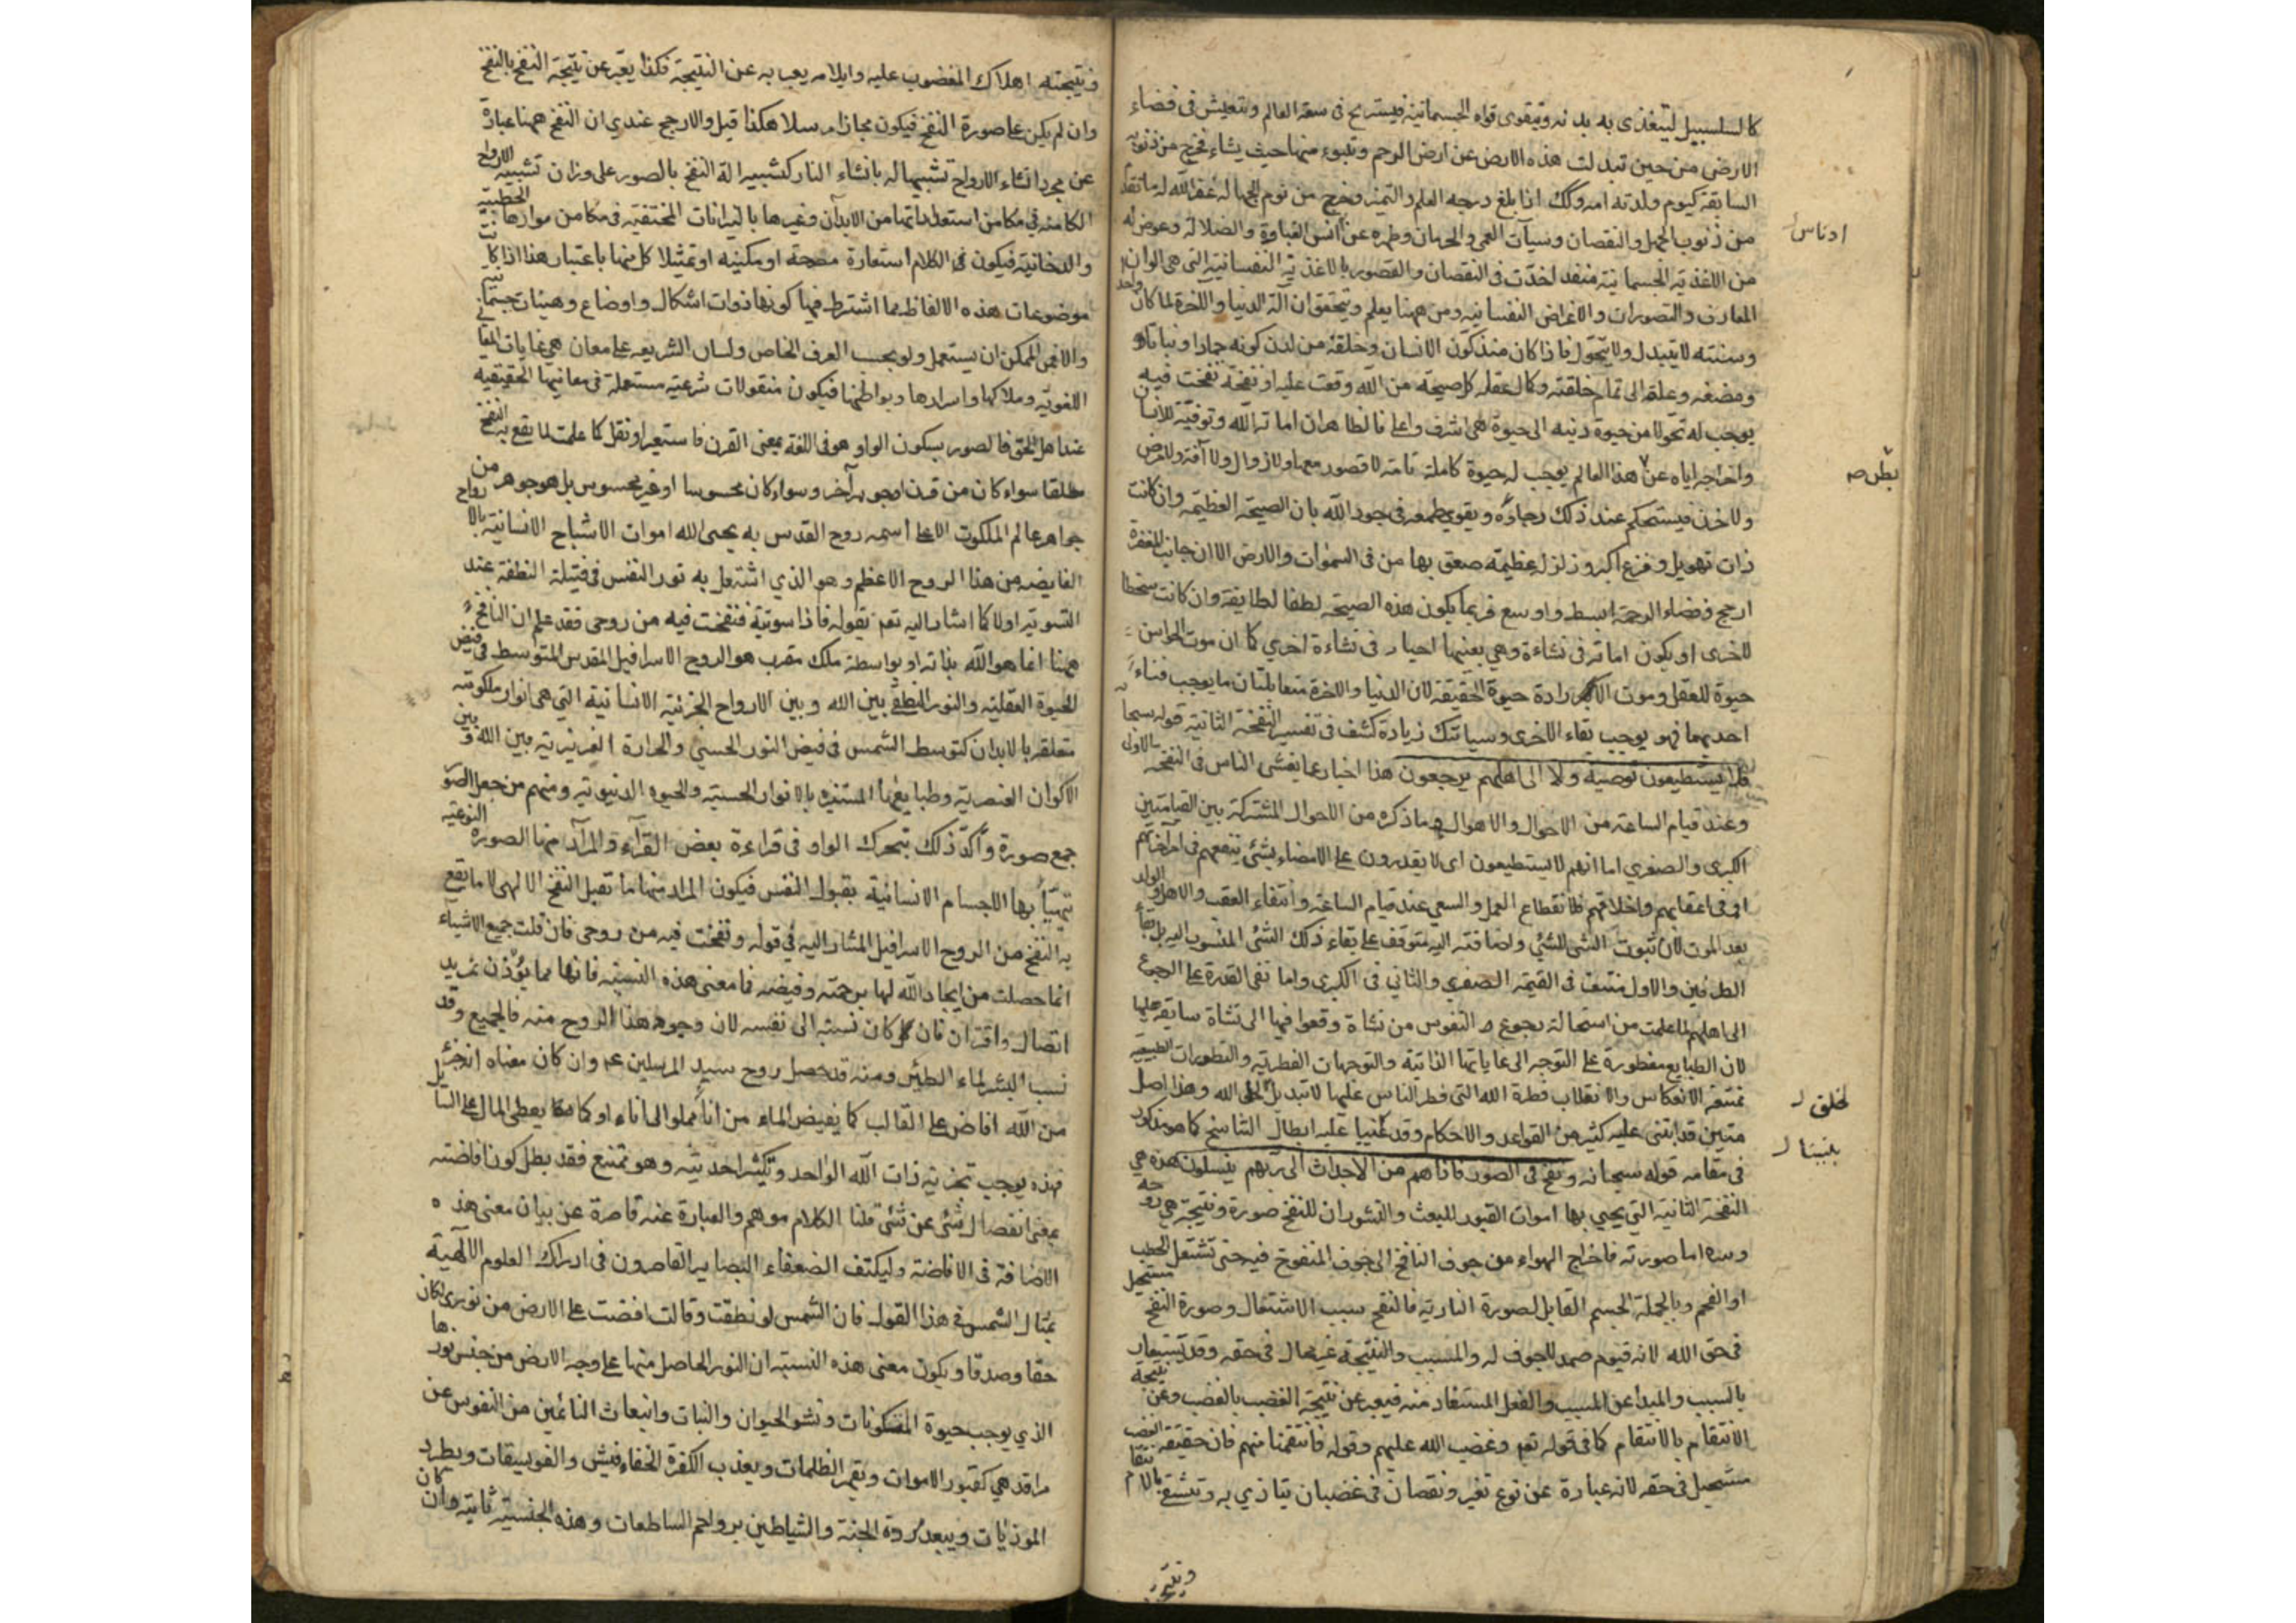 كالسلسبيل ليتغذى به بدنه ويتقوى قواه الجسمانية فيستريح فى سعة العالم ويتعيش فى فضاء
الارض من حين تبدلت هذه الارض عن ارض الرحم وتبوء منها حيث يشاء فخرج من ذنوبه
السابقة كيوم ولدته امه وكك اذا بلغ درجة العلم والتميز وخرج من نوم الجهالة غفر الله له ما تقدم
من ذنوب الجهل والنقصان وسيآت العمى والحرمان وطهره عن الغباوة والضلالة وعوض له
من الاغذية الجسمانية اخذت فى النقصان والقصور بالاغذية النفسانية التى هى الوان
المعارف والتصورات والاغراض النفسانية ومن ههنا يعلم ويتحقق ان آله الدنيا والاخرة لما كان واحد
وسنته لا يتبدل ولا يتحول فاذا كان منذ كون الانسان وخلقه من لدن كونه جمادا ونباتا و
ومضغه وعلقة الى تمام خلقته وكمال عقله كل صيحة من الله وقعت عليه او نفخة نفخت فيه
يوجب له تحولا من حيوة دنيه الى حيوة هى اشرف واعلى فالظاهر ان اماتة الله وتوفيه للانسان
واخراجه اياه عن هذا العالم يوجب له حيوة كاملة تامة لا قصور معها ولا زوال ولا آفة ولا مرض
ولا حزن فيستحكم عند ذلك رجاؤه ويقوى طمعه فى جود الله بان الصيحة العظيمة وان كانت
ذات تهويل وفزع اكبر وزلزلة عظيمة صعق بها من فى السموات والارض الا ان جانب المغفرة
ارجح وفضاء الرحمة ابسط واوسع فربما يكون هذه الصيحة لطفا لطايفة وان كانت سخطا
للاخرى او يكون اماتة فى نشاءة وهى بعينها احياء فى نشاءة اخرى كما ان موت الحواس
حيوة للعقل وموت الارادة حيوة الحقيقة لان الدنيا والاخرة متقابلتان ما يوجب فناء
احديهما فهو يوجب بقاء الاخرى وسياتيك زيادة كشف فى تفسير النفخة الثانية قوله سبحانه
فلا يستطيعون توصية ولا الى اهلهم يرجعون هذا اخبار عما يغشى الناس فى النفخة الاولى
وعند قيام الساعة من الاحوال والاهوال وما ذكره من الاحوال المشتركة بين القيامتين
الكبرى والصغرى اما انهم لا يستطيعون اى لا يقدرون على الايصاء بشئ ينفعهم فى امر آخرتهم
او فى اعقابهم واخلافهم فلانقطاع العمل والسعى عند قيام الساعة وانتفاء العقب والاهل والولد
بعد الموت لان ثبوت الشئ للشئ واضافته اليه متوقف على بقاء ذلك الشئ المنسوب اليه بل بقاء
الطرفين والاول منتف فى القيمة الصغرى والثانى فى الكبرى واما نفى القدرة على الرجوع
الى اهلهم لما علمت من استحالة رجوع النفوس من نشاة وقعوا فيها الى نشاة سابقة عليها
لان الطبايع مفطورة على التوجه الى غاياتها الذاتية والتوجهات الفطرية والتطورات الطبيعية
ممتنعة الانعكاس والانقلاب فطرة الله التى فطر الناس عليها لا تبديل لخلق الله وهذا اصل
متين قد ابتنى عليه كثير من القواعد والاحكام وقد بنينا عليه ابطال التناسخ كما هو مذكور
فى مقامه قوله سبحانه ونفخ فى الصور فاذا هم من الاجداث الى ربهم ينسلون هذه هى
النفخة الثانية التى يحيى بها اموات القبور للبعث والنشور ان للنفخ صورة ونتيجة هى روحه
وسره اما صورته فاخراج الهواء من جوف النافخ الى جوف المنفوخ فيه حتى تشتعل الحطب
او الفحم وبالجملة الجسم القابل لصورة النارية فالنفخ سبب الاشتعال وصورة النفخ مستحيل
فى حق الله لانه قيوم صمد لا جوف له والمسبب والنتيجة غير محال فى حقه وقد يستعار
بالسبب والمبدا عن المسبب والفعل المستفاد منه فيعبر عن نتيجة الغضب بالغضب وعن نتيجة
الانتقام بالانتقام كما فى قوله تعه وغضب الله عليهم وقوله فانتقمنا منهم فان حقيقة الغضب
مستحيل فى حقه لانه عبارة عن نوع تغير ونقصان فى غضبان يتاذى به وتشفى بالانتقام
ادناس
بطن صه
لخلق
بنينا
ونتيجته
ونتيجته اهلاك المغضوب عليه وايلامه يعبر به عن النتيجة فكذا يعبر عن نتيجة النفخ بالنفخ
وان لم يكن على صورة النفخ فيكون مجازا مرسلا هكذا قيل والارجح عندى ان النفخ ههنا عبارة
عن مجرد انشاء الارواح تشبيها له بانشاء النار كتشبيه الة النفخ بالصور على وزان تشبيه الارواح
الكامنة فى مكامن استعداداتها من الابدان وغيرها بالنيرانات المختفية فى مكامن موادها الحطبية
والدخانية فيكون فى الكلام استعارة مصرحة او مكنيه او تمثيلا كل منها باعتبار هذا اذا كانت
موضوعات هذه الالفاظ مما اشترط فيها كونها ذوات اشكال واوضاع وهيئات جسمانية
والا فمن الممكن ان يستعمل ولو بحسب العرف الخاص ولسان الشريعه على معان هى غايات المعانى
اللغوية وملاكها واسرارها وبواطنها فيكون منقولات شرعية مستعملة فى معانيها الحقيقيه
عند اهل الحق فالصور بسكون الواو هو فى اللغة بمعنى القرن فاستعير او نقل كما علمت لما يقع به النفخ
مطلقا سواء كان من قرن او جوهر آخر وسواء كان محسوسا او غير محسوس بل هو جوهر من
جواهر عالم الملكوت الاعلى اسمه روح القدس به يحيى الله اموات الاشباح الانسانية بالارواح
الفايضه من هذا الروح الاعظم وهو الذى اشتعل به نور النفس فى فتيلة النطفة عند
التسوية اولا كما اشار اليه تعه بقوله فاذا سويته فنفخت فيه من روحى فقد علم ان النافخ
ههنا انما هو الله بذاته او بواسطة ملك مقرب هو الروح الاسرافيل المقدس المتوسط فى فيض
الحيوة العقلية والنور بين الله وبين الارواح الجزئية الانسانية التى هى انوار ملكوتيه
متعلقه بالابدان كتوسط الشمس فى فيض النور الحسى والحرارة الغريزية بين الله وبين
الاكوان العنصرية وطبايعها المستنيره بالانوار الحسية والحيوه الدنيوية ومنهم من جعل الصور
جمع صورة واكد ذلك بتحرك الواو فى قراءة بعض القراء والمراد منها الصورة النوعيه
تتهيأ بها الاجسام الانسانية بقبول النفس فيكون المراد منها ما تقبل النفخ الالهى لا ما يقع
به النفخ من الروح الاسرافيل المشار اليه فى قوله ونفخت فيه من روحى فان قلت جميع الاشياء
انما حصلت من ايجاد الله لها برحمته وفيضه فما معنى هذه النسبة فانها مما يؤذن بمزيد
اتصال واقتران فان كان نسبه الى نفسه لان وجود هذا الروح منه فالجميع وقد
نسب البشر لماء الطين ومنه قد حصل روح سيد المرسلين عم وان كان معناه انه جزئ
من الله افاض على القالب كما يفيض الماء من اناء مملو الى اناء او كما يعطى المال على السايل
فهذه يوجب تجزية ذات الله الواحد وتكثير احديته وهو ممتنع فقد بطل كون افاضته
بمعنى انفصال شئ عن شئ قلنا الكلام موهم والعبارة عنه قاصرة عن بيان معنى هذه
الاضافة فى الافاضة وليكتف الضعفاء البصاير القاصرون فى ادراك العلوم الالهية
بمثال الشمس فى هذا القول فان الشمس لو نطقت وقالت افضت على الارض من نورى لكان
حقا وصدقا ويكون معنى هذه النسبة ان النور الحاصل منها على وجه الارض من جنس نورها
الذى يوجب حيوة المكونات ونشو الحيوان والنبات وانبعاث النائمين من النفوس عن
مراقد هى كقبور الاموات ويقهر الظلمات ويعذب الكفرة الخفافيش والفويسقات ويطرد
الموذيات ويبعد مردة الجنة والشياطين برواجم الساطعات وهذه الجنسية ثابتة وان كان